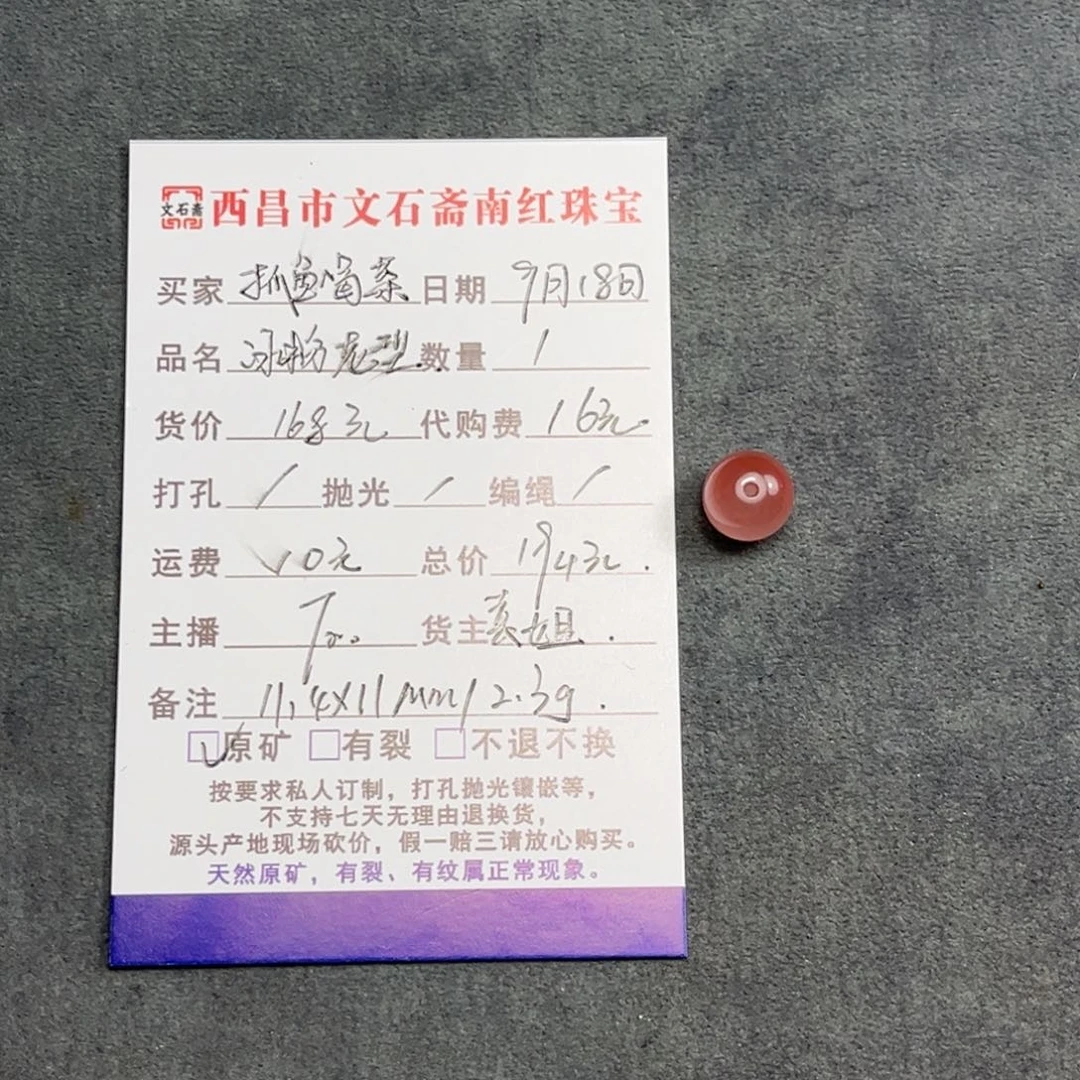 文石斋 西昌市文石斋南红珠宝
买家 抓鱼喵菜 日期 9月18日
品名 冰粉 数量 1
货价 168元 代购费 16元.
打孔 / 抛光 / 编绳 /
运费 10元 总价 194元.
主播 货主 姐.
备注 11.4X11mm/2.3g.
原矿 有裂 不退不换
按要求私人订制，打孔抛光镶嵌等，
不支持七天无理由退换货，
源头产地现场砍价，假一赔三请放心购买。
天然原矿，有裂、有纹属正常现象。